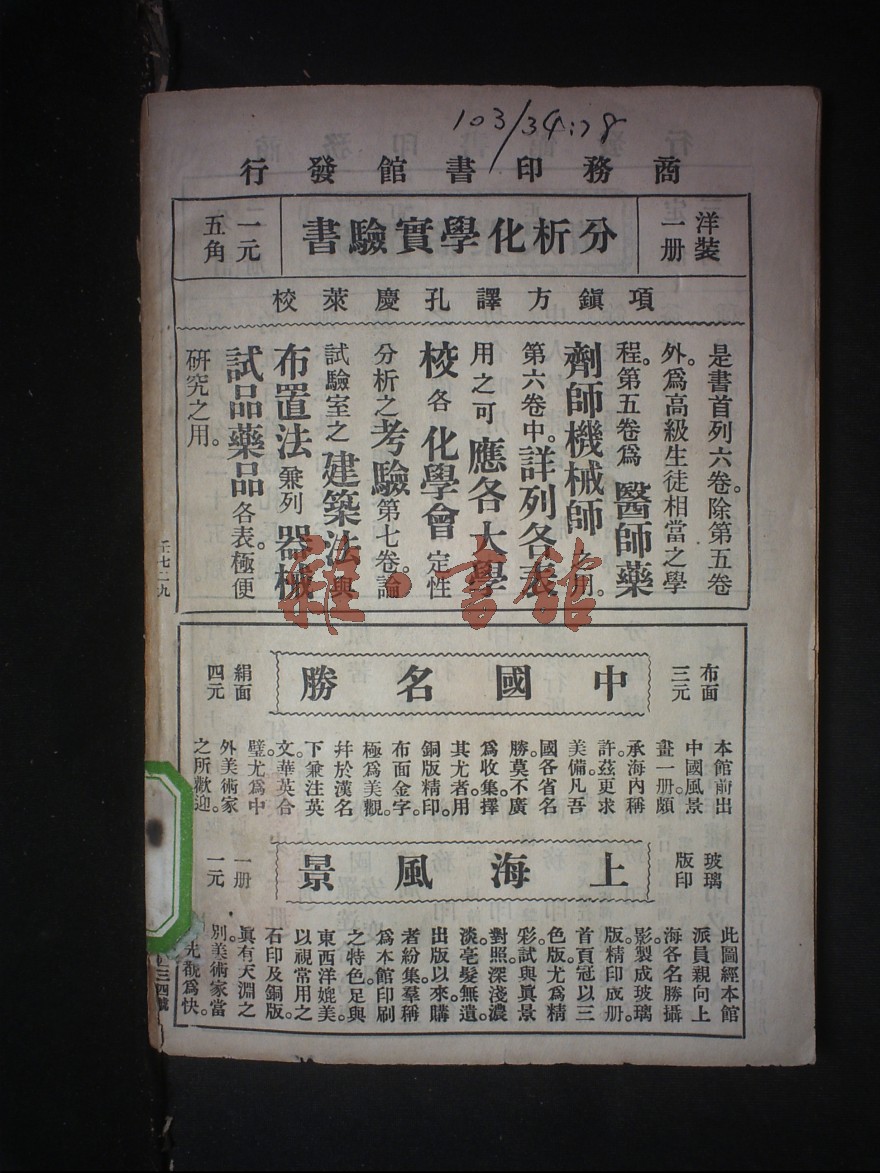 103/34:78
商務印書館發行
洋裝
一册
分析化學實驗書
一元
五角
項鎭方譯孔慶萊校
是書首列六卷。除第五卷
外。爲高級生徒相當之學
程。第五卷爲醫師藥
劑師機械師之用。
第六卷中。詳列各表
用之可應各大學
校各化學會定性
分析之考驗。第七卷。論
試驗室之建築法與
布置法兼列器械
試品藥品各表。極便
研究之用。
壬七二九
布面
三元
中國名勝
絹面
四元
本館前出
中國風景
畫一册頗
承海內稱
許。茲更求
美備。凡吾
國各省名
勝。莫不廣
爲收集。擇
其尤者。用
銅版精印。
布面金字。
極爲美觀。
幷於漢名
下兼注英
文。華英合
璧。尤爲中
外美術家
之所歡迎。
玻璃
版印
上海風景
一册
一元
此圖經本館
派員親向上
海各名勝攝
影。製成玻璃
版。精印成册。
首頁冠以三
色版。尤爲精
彩。試與眞景
對照。深淺濃
淡。毫髮無遺
出版以來。購
者紛集。羣稱
爲本館印刷
之特色。足與
東西洋媲美。
以視常用之
石印及銅版。
眞有天淵之
別。美術家當
先覩爲快。
三四號
雜·書館